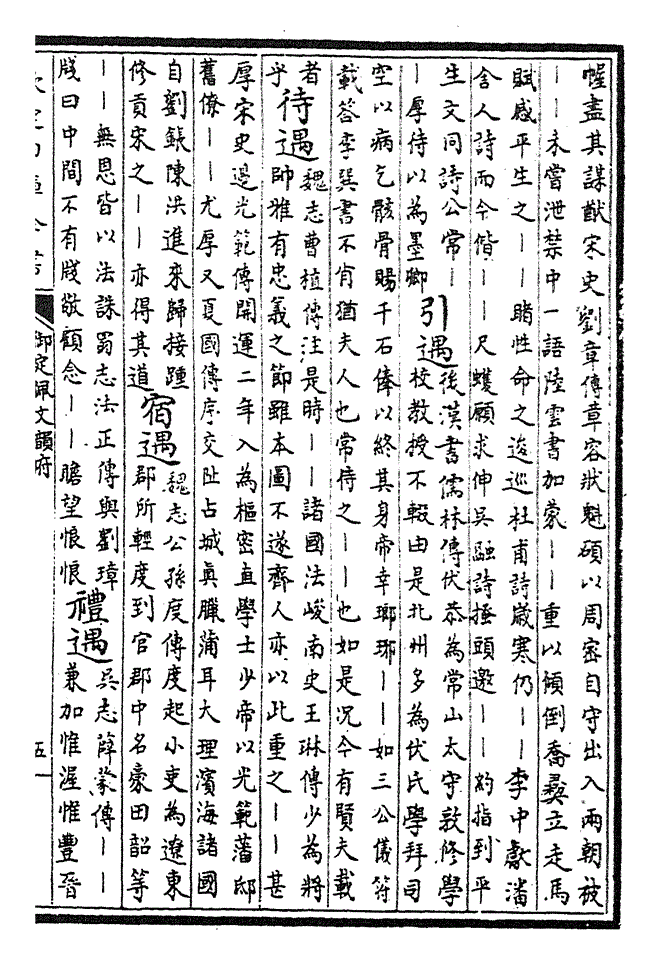 幄盡其謀猷宋史劉章傳章容狀魁碩以周密自守出入兩朝被
——未嘗泄禁中一語陸雲書加蒙——重以傾倒喬彝立走馬
賦感平生之——賭性命之逡巡杜甫詩嵗寒仍——李中獻潘
舍人詩而今偕——尺蠖願求伸吳融詩搔頭邀——約指到平
生文同詩公常—
—厚待以為墨卿
引遇
後漢書儒林傳伏恭為常山太守敦修學
校教授不輟由是北州多為伏氏學拜司
空以病乞骸骨賜千石俸以終其身帝幸瑯琊——如三公儀符
載答李巽書不肖猶夫人也常待之——也如是況今有賢夫載
者
乎
待遇
魏志曹植傳注是時——諸國法峻南史王琳傳少為將
帥雅有忠義之節雖本圖不遂齊人亦以此重之——甚
厚宋史邊光範傳開運二年入為樞密直學士少帝以光範藩邸
舊僚——尤厚又夏國傳序交阯占城真臘蒲耳大理濱海諸國
自劉鋹陳洪進來歸接踵
修貢宋之——亦得其道
宿遇
魏志公孫度傳度起小吏為遼東
郡所輕度到官郡中名豪田韶等
——無恩皆以法誅蜀志法正傳與劉璋
牋曰中間不有牋敬顧念——瞻望悢悢
禮遇
吳志薛綜傳——
兼加惟渥惟豐晉
御定佩文韻府